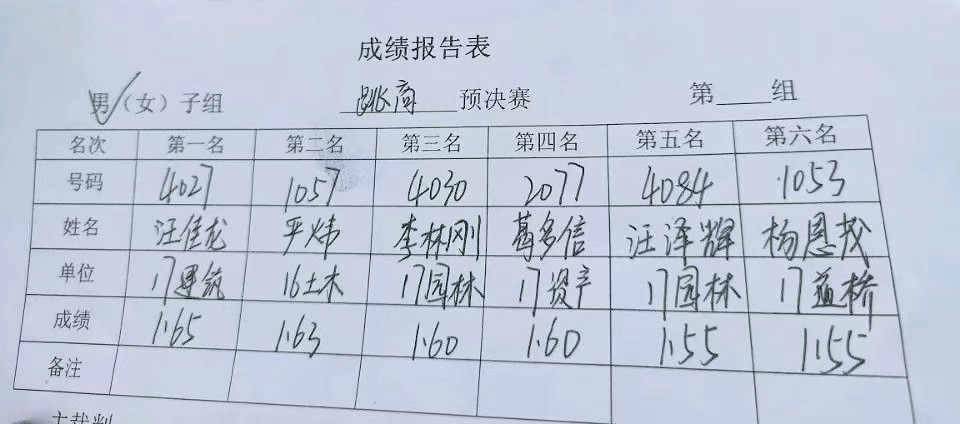 成绩报告表
男（女）子组 跳高 预决赛 第____组
名次 第一名 第二名 第三名 第四名 第五名 第六名
号码 4027 1057 4030 2077 4084 1053
姓名 汪佳龙 平炜 李林刚 葛多信 汪泽辉 杨恩茂
单位 17建筑 16土木 17园林 17资产 17园林 17道桥
成绩 1.65 1.63 1.60 1.60 1.55 1.55
备注
主裁判